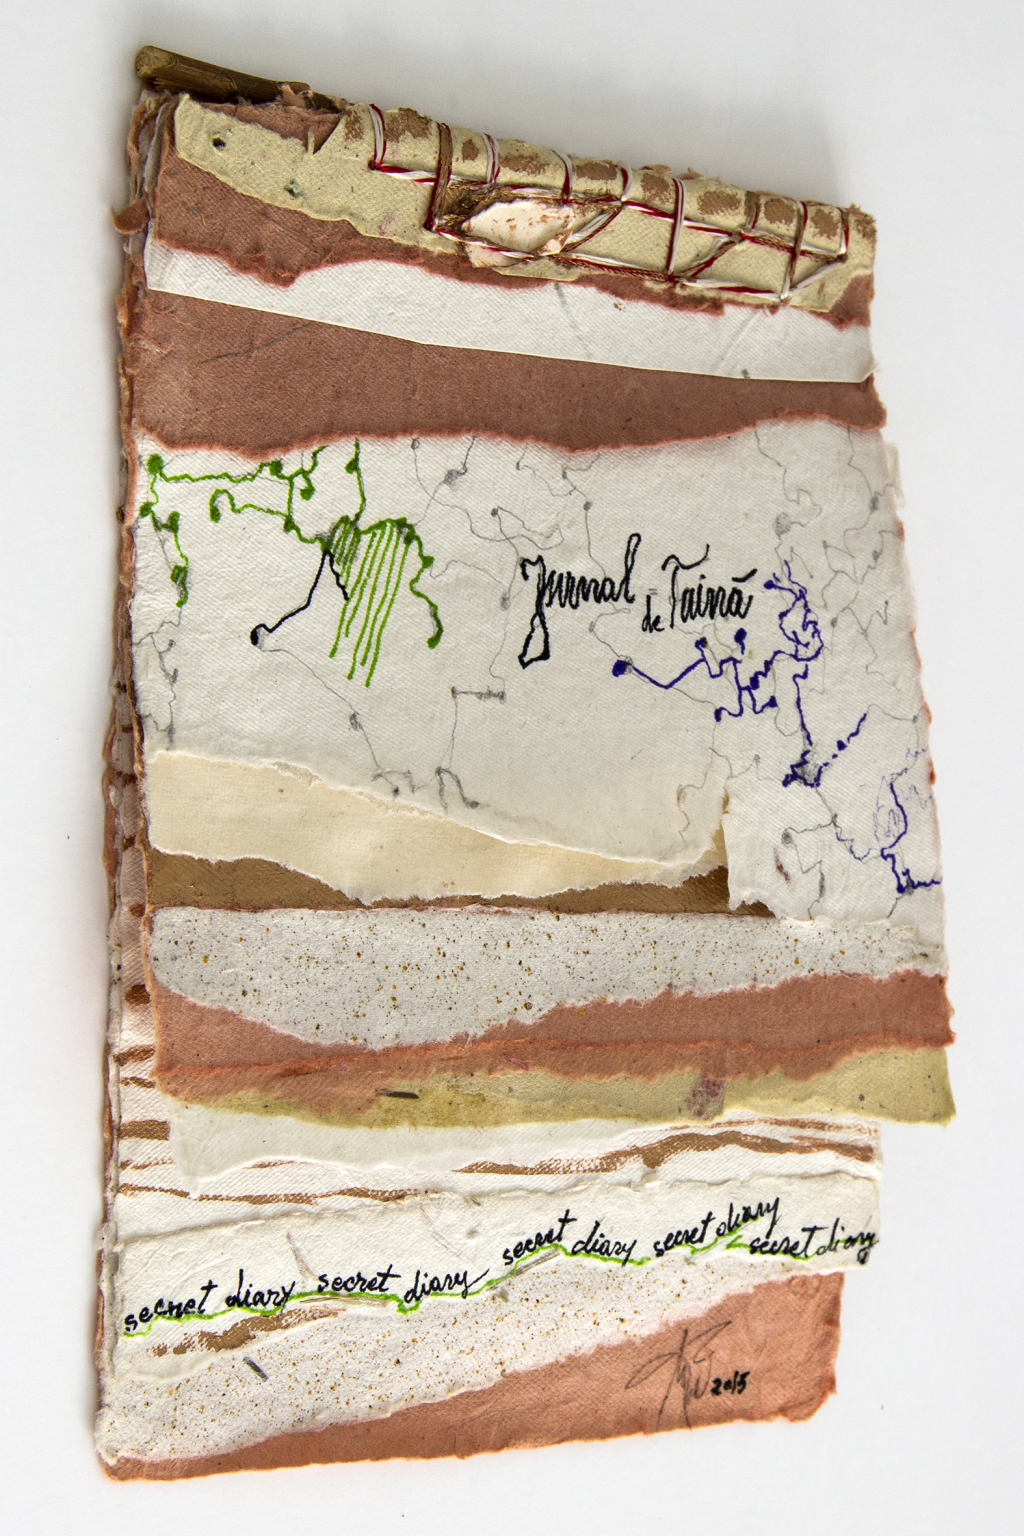 Jurnal de Taină
secret diary secret diary secret diary secret diary secret diary
2015